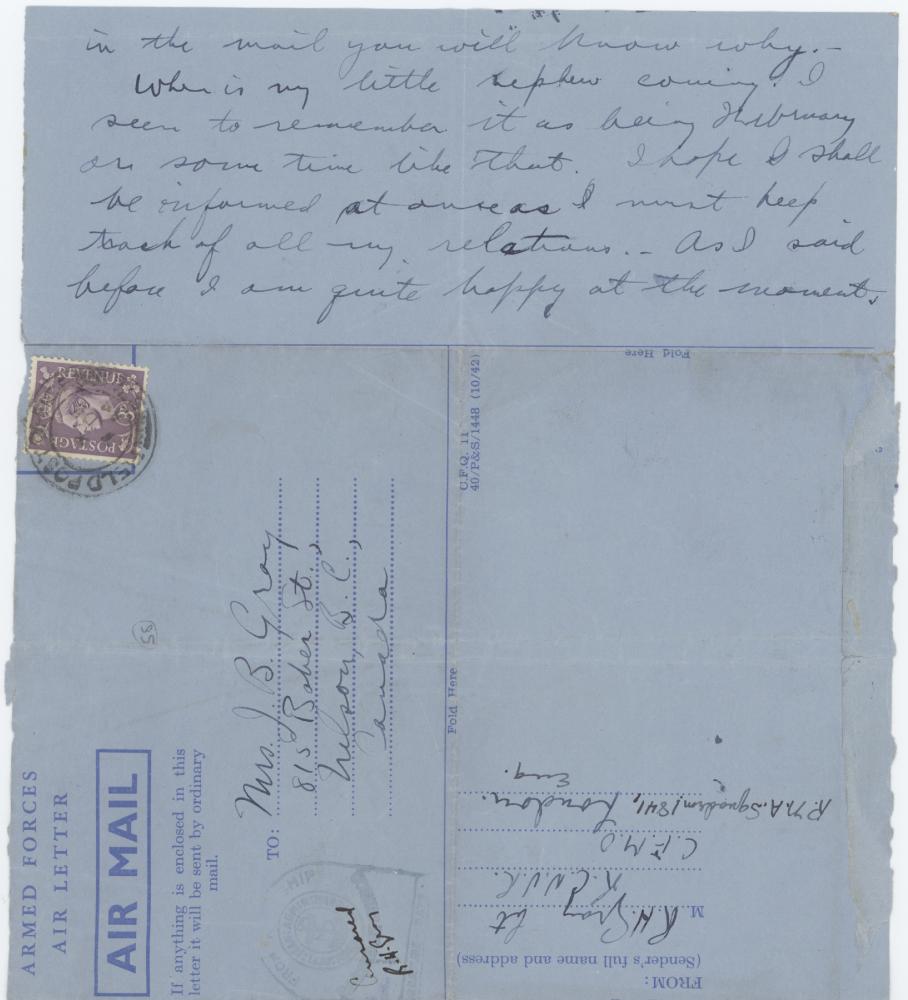 in the mail you will know why.-
When is my little nephew coming. I
seem to remember it as being February
or some time like that. I hope I shall
be informed at once as I must keep
track of all my relations.- As I said
before I am quite happy at the moment,
Fold Here
REVENUE
POSTAGE
FIELD POST
C.F.Q. 11
40/P&S/1448 (10/42)
35
ARMED FORCES
AIR LETTER
AIR MAIL
If anything is enclosed in this
letter it will be sent by ordinary
mail.
TO:
Mrs. J. B. Gray
815 Baker St.,
Nelson, B.C.,
Canada
Censored
R.H. Gray
Fold Here
FROM:
(Sender's full name and address)
M. R H Gray Lt
R.C.N.V.R.
C.F.M.O
London.
Eng.
R.N.A. Squadron 1841,